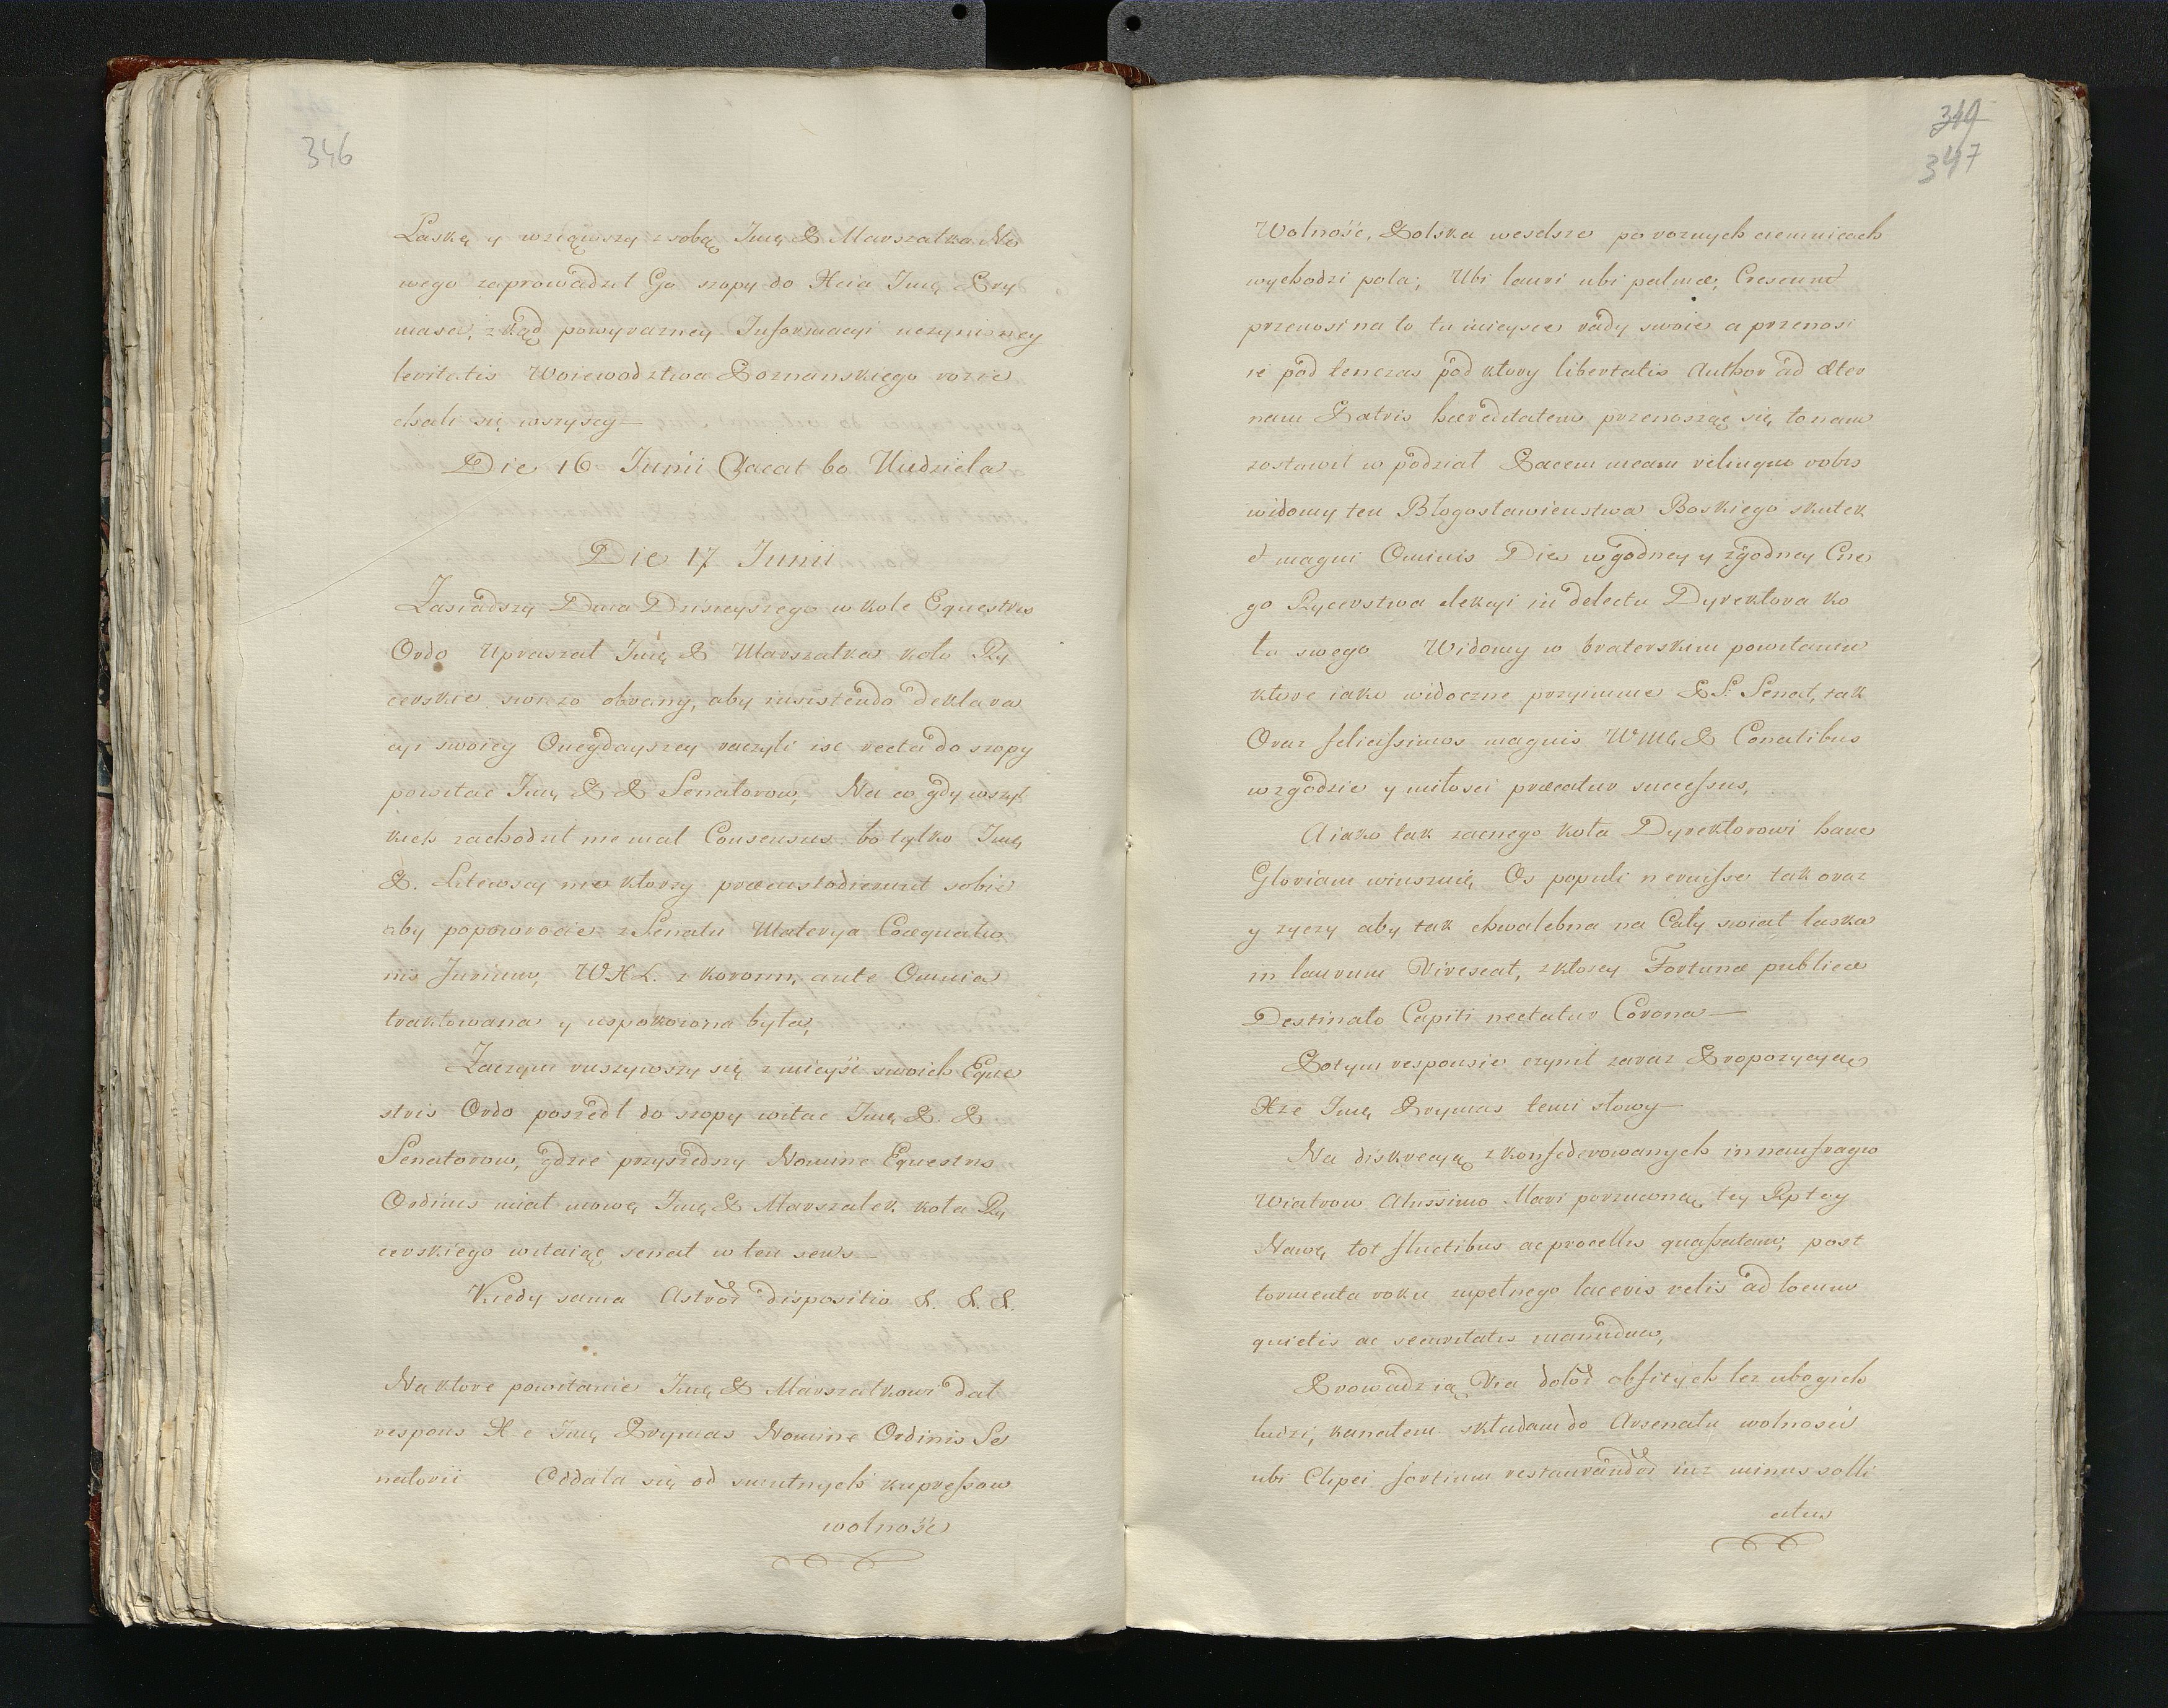 346
Laskę y wziąwszy z sobą Imę P Marszałka No
wego zaprowadził Go szopy do Xcia Imę Pry
masa, zkąd powyrazney Informacyi uczynioney
levitatis Woiewodztwa Poznanskiego roziе
chali się wszyscy —
Die 16 Junii Vacat bo Niedziela
Die 17 Junii
Zasiadszy Dnia Dzisieyszego w kole Equestris
Ordo Upraszal Imę P Marszałka koło Ry
cerskie swiezo obrany, aby insistendo deklara
cyi swoiey Onegdayszey raczyli isc recta do szopy
powitac Imę P P Senatorow, Na co gdy wszyt
kich zachodzil niemal Consensus bo tylko Imę
P. Litewscy niektorzy praecustodierunt sobie
aby popowrocie z Senatu Materya Coaequatio
nis Jurium, W X L. z koronn, ante Omnia
traktowana y uspokoiona była,
Zaczym ruszywszy się z mieysc swoich Eque
stris Ordo poszedł do szopy witac Imę P. P
Senatorow, gdzie przyszedszy Nomine Equestris
Ordinis miał mowę Imę P Marszałek koła Ry
cerskiego witaiąc senat w ten sens —
Kiedy sama Astror dispositio &. &. &.
Na ktore powitanie Imę P Marszałkowi dał
respons X e Imę Prymas Nomine Ordinis Se
natorii Oddala się od smutnych kupressow
wolność
349
347
Wolność, Polska weselsze po roznych ciemnicach
wychodzi pola; Ubi lauri ubi palmae, Crescunt
przenosi na to tu mieysce rady swoie a przenosi
ie pod tenczas pod ktory libertatis Author ad aeter
nam Patris haereditatem przenosząc się to nam
zostawił w podział Pacem meam relinquo vobis
widomy ten Błogosławienstwa Boskiego skutek
et magni Ominis Die w godney y zgodney Cne
go Rycerstwa elekcyi in delectu Dyrektora ko
ła swego Widomy w braterskim powitaniu
ktore iako widocznie przyimuie P S: Senat, tak
Oraz felicissimos magnis WMć P Conatibus
w zgodzie y miłosci praecatur successus,
A iako tak zacnego koła Dyrektorowi hanc
Gloriam winszuię Os populi meruisse tak oraz
y zyczy aby tak chwalebna na Cały swiat laska
in laurum Virescat, z ktorey Fortunae publicae
Destinato Capiti nectatur Corona —
Po tym responsie czynił zaraz Propozycyą
Xze Imę Prymas temi słowy —
Na diskrecyą zkonfederowanych in naufragio
Wiatrow Altissimo Mari porzuconą tey Rptey
Nawę tot fluctibus ac procellis quassatam, post
tormenta roku zupełnego laceris velis ad locum
quietis ac securitatis manuduco,
Prowadzią Via dolor obfitych łez ubogich
ludzi, kanatem składam do Arsenału wolności
ubi Clipei fortium restaurandor iuz minus solli
citus